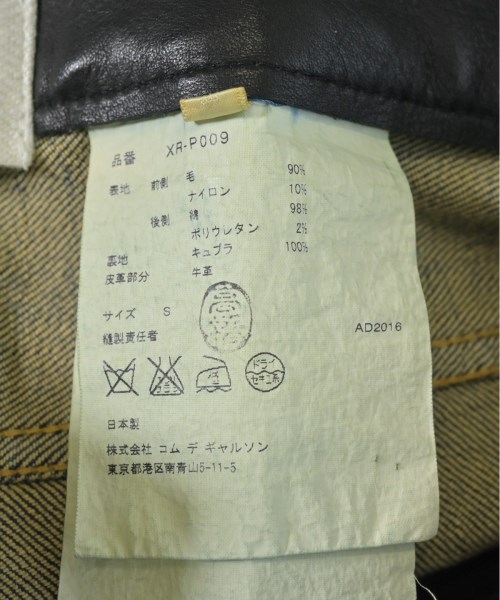 品番 XR-P009
表地 前側 毛 90%
ナイロン 10%
後側 綿 98%
ポリウレタン 2%
裏地 キュプラ 100%
皮革部分 牛革
サイズ S
縫製責任者
AD2016
エンソサラシ
中
ドライ
セキユ系
日本製
株式会社 コム デ ギャルソン
東京都港区南青山5-11-5